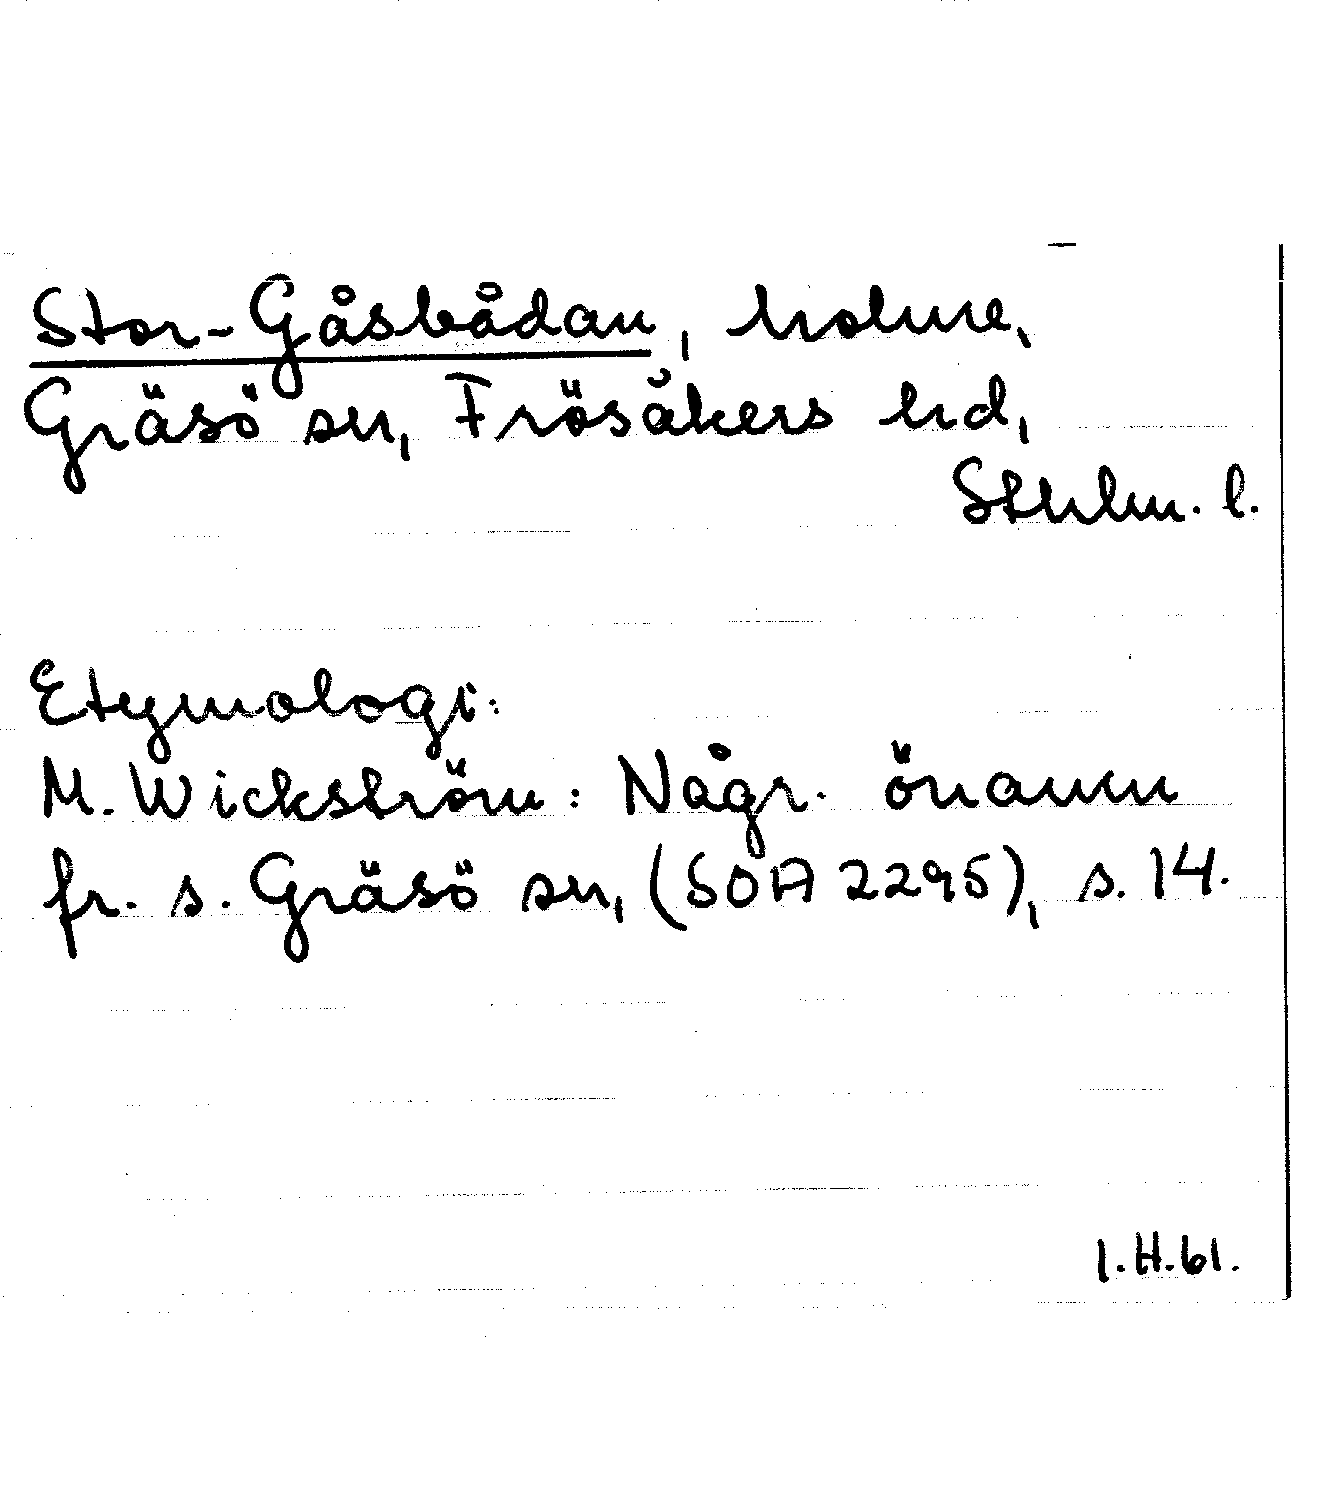 Stor-Gåsbådan, holme,
Gräsö sn, Frösåkers hd,
Sthlm. l.
Etymologi:
M. Wickström: Någr. önamn
fr. s. Gräsö sn, (SOA 2295), s. 14.
I.H.61.